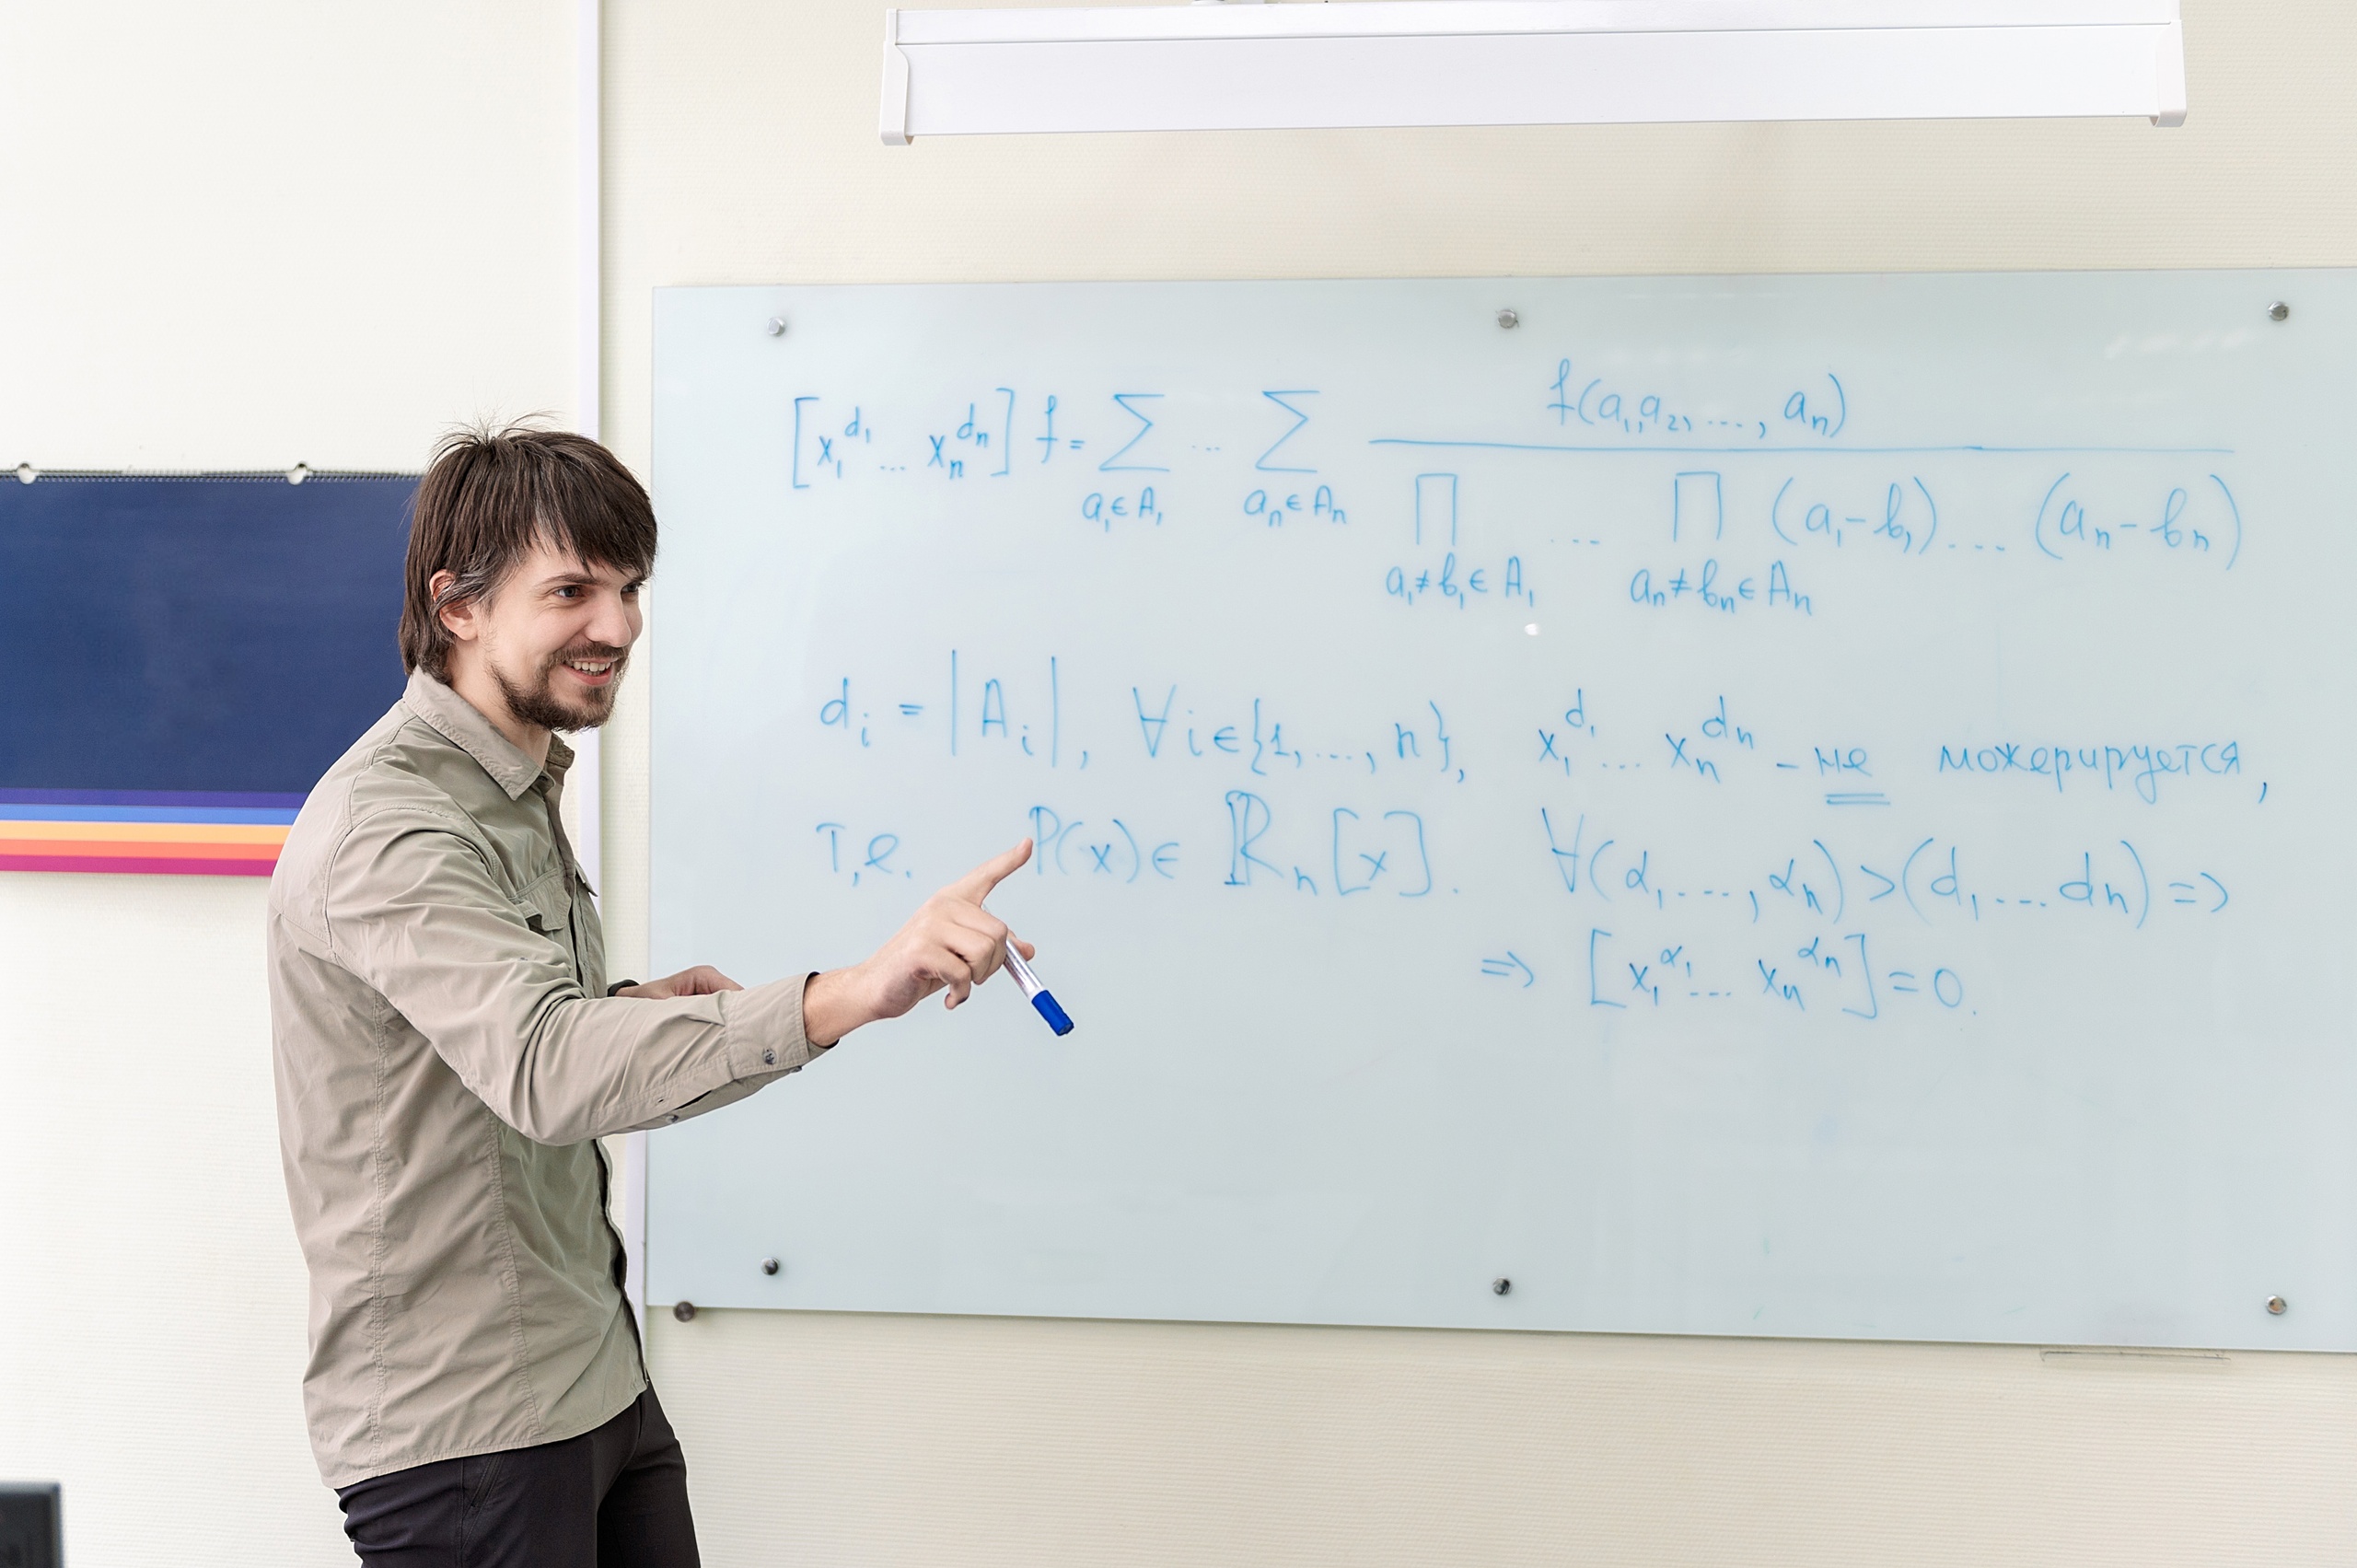 [x₁^{d₁} ... x_n^{d_n}] f = ∑_{a₁∈A₁} ... ∑_{a_n∈A_n} f(a₁, a₂, ..., a_n) / ∏_{a₁≠b₁∈A₁} ... ∏_{a_n≠b_n∈A_n} (a₁-b₁) .... (a_n-b_n)
d_i = |A_i|, ∀i∈{1, ..., n}, x₁^{d₁} ... x_n^{d_n} - не можерируется,
т,е. P(x) ∈ ℝ_n[x]. ∀(α₁ ..., α_n) > (d₁ ... d_n) =>
=> [x₁^{α₁} ... x_n^{α_n}] = 0.